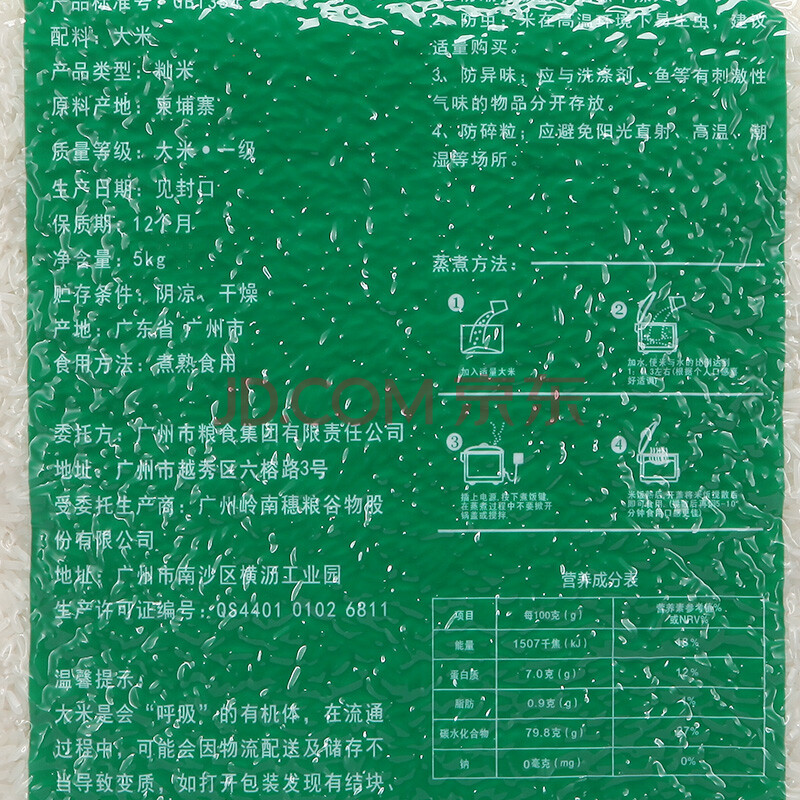 产品标准号：GB1354
配料：大米
产品类型：籼米
原料产地：柬埔寨
质量等级：大米·一级
生产日期：见封口
保质期：12个月
净含量：5kg
贮存条件：阴凉、干燥
产地：广东省 广州市
食用方法：煮熟食用
委托方：广州市粮食集团有限责任公司
地址：广州市越秀区六榕路3号
受委托生产商：广州岭南穗粮谷物股
份有限公司
地址：广州市南沙区横沥工业园
生产许可证编号：QS4401 0102 6811
温馨提示：
大米是会“呼吸”的有机体，在流通
过程中，可能会因物流配送及储存不
当导致变质，如打开包装发现有结块
2、防虫：米在高温环境下易生虫，建议
适量购买。
3、防异味：应与洗涤剂、鱼等有刺激性
气味的物品分开存放。
4、防碎粒：应避免阳光直射、高温、潮
湿等场所。
蒸煮方法：
1
加入适量大米
2
加水，使米与水的比例达到
1：1.3左右(根据个人口感喜
好适调)
3
插上电源，按下煮饭键，
在蒸煮过程中不要掀开
锅盖或搅拌
4
米饭熟后，开盖将米饭搅散后
即可食用，
分钟食用口感更佳)
JD.COM 京东
营养成分表
项目 每100克(g) 营养素参考值%或NRV%
能量 1507千焦(kJ) 18%
蛋白质 7.0克(g) 12%
脂肪 0.9克(g)
碳水化合物 79.8克(g) 27%
钠 0毫克(mg) 0%